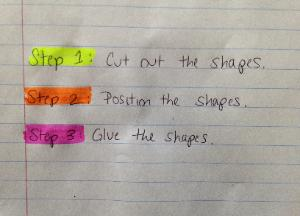 Step 1: Cut out the shapes.
Step 2: Position the shapes.
Step 3: Glue the shapes.